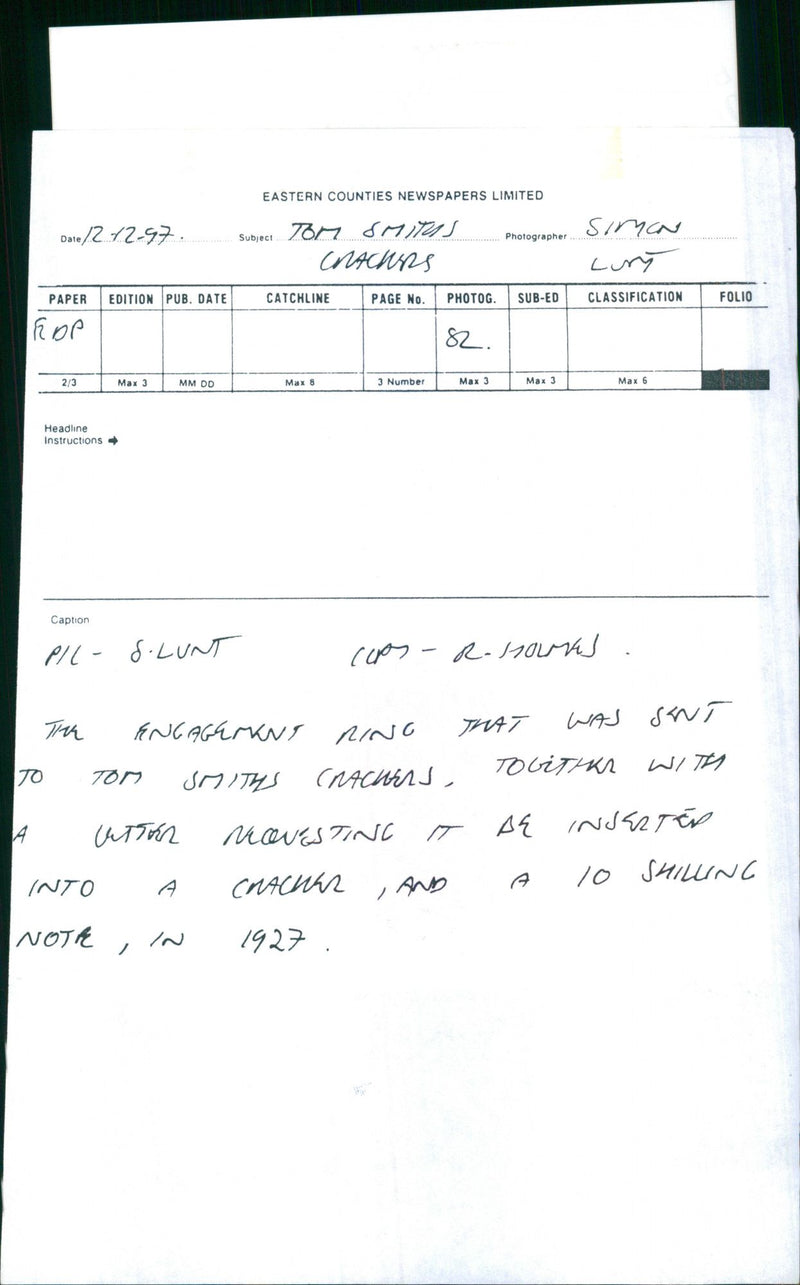 EASTERN COUNTIES NEWSPAPERS LIMITED
Date 12-12-97. Subject TOM SMITHS Photographer SIMON
CRACKERS LUNT
PAPER EDITION PUB. DATE CATCHLINE PAGE No. PHOTOG. SUB-ED CLASSIFICATION FOLIO
EDP 82.
2/3 Max 3 MM DD Max 8 3 Number Max 3 Max 3 Max 6
Headline
Instructions ➔
Caption
PIC - S.LUNT COPY - R-HOLMES .
THE ENGAGEMENT RING THAT WAS SENT
TO TOM SMITHS CRACKERS, TOGETHER WITH
A LETTER REQUESTING IT BE INSERTED
INTO A CRACKER, AND A 10 SHILLING
NOTE, IN 1927.